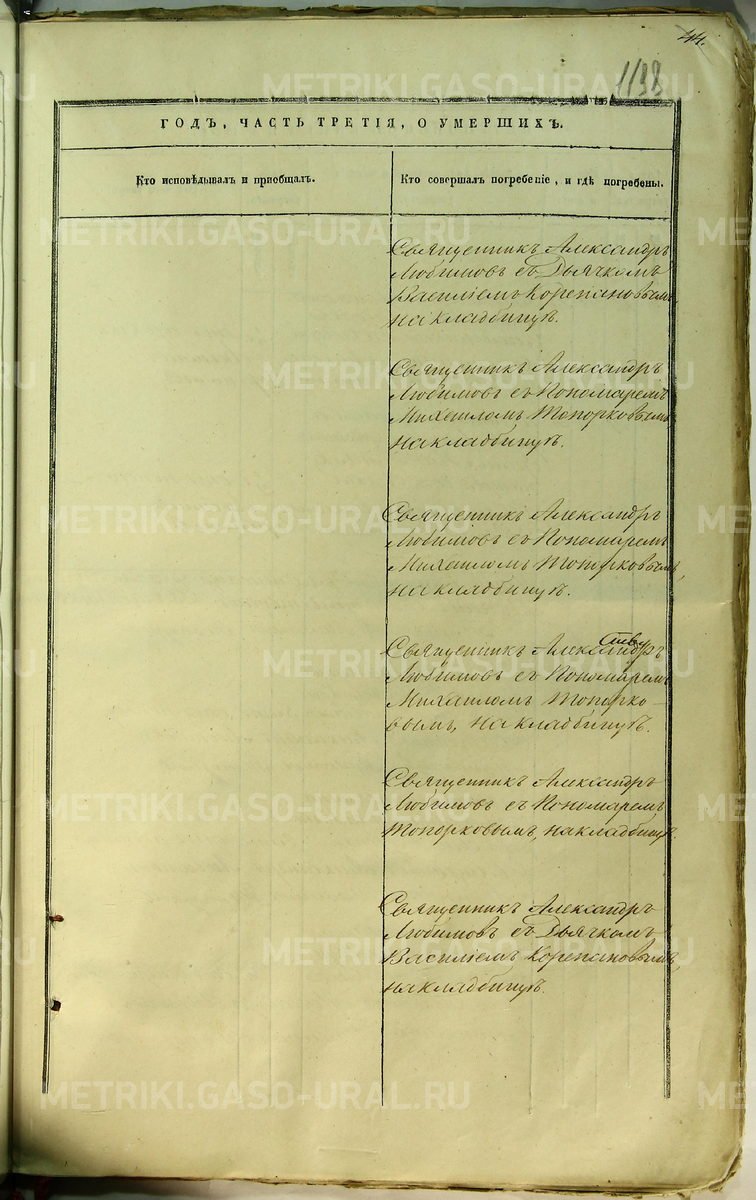 44.
1198
ГОДЪ, ЧАСТЬ ТРЕТІЯ, О УМЕРШИХЪ.
Кто исповѣдывалъ и пріобщалъ.
Кто совершалъ погребеніе, и гдѣ погребены.
Священникъ Александръ
Любимовъ съ Дьячкомъ
Василіемъ Корепановымъ
на кладбищѣ.
Священникъ Александръ
Любимовъ съ Пономаремъ
Михаиломъ Топорковымъ
на кладбищѣ.
Священникъ Александръ
Любимовъ съ Пономаремъ
Михаиломъ Топорковымъ,
на кладбищѣ.
Священникъ Александръ
Любимовъ съ Пономаремъ
Михаиломъ Топорко-
вымъ, на кладбищѣ.
Священникъ Александръ
Любимовъ съ Пономаремъ
Топорковымъ, на кладбищѣ.
Священникъ Александръ
Любимовъ съ Дьячкомъ
Василіемъ Корепановымъ,
на кладбищѣ.
METRIKI.GASO-URAL.RU